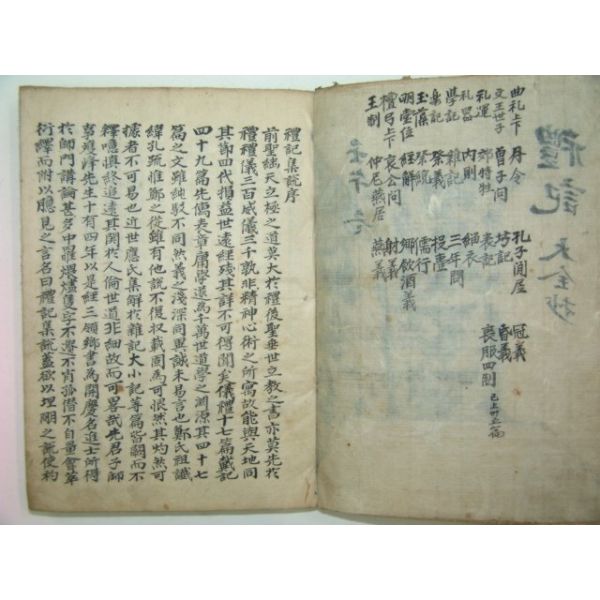 曲礼上下 月令 孔子閒居 冠義
文王世子 曾子問 坊記 昏義
礼運 郊特牲 表記 喪服四制 已上卅五篇
礼器 內則 緇衣
學記 雜記 三年問
樂記 祭義 投壺
玉藻 祭統 儒行
明堂位 經解 鄉飲酒義
檀弓上下 哀公問 射義
王制 仲尼燕居 燕義
禮記集說序
前聖繼天立極之道莫大於禮後聖垂世立教之書亦莫先於
禮禮儀三百威儀三千孰非精神心術之所寓故能與天地同
其節四代損益世遠經殘其詳不可得聞矣儀禮十七篇戴記
四十九篇先儒表章庸學遂為千萬世道學之淵源其四十七
篇之文雖純駁不同然義之淺深同異誠未易言也鄭氏祖讖
緯孔疏惟鄭之從雖有他說不復収載固為可恨然其灼然可
據者不可易也近世應氏集解於雜記大小記等篇皆闕而不
釋噫慎終追遠其関於人倫世道非細故而可畧哉先君子師
事雙峰先生十有四年以是經三領鄉書為開慶名進士所得
於師門講論甚多中罹煨燼隻字不遺不肖孤僭不自量會萃
衍繹而附以臆見之言名曰禮記集說蓋欲以坦明之說使初